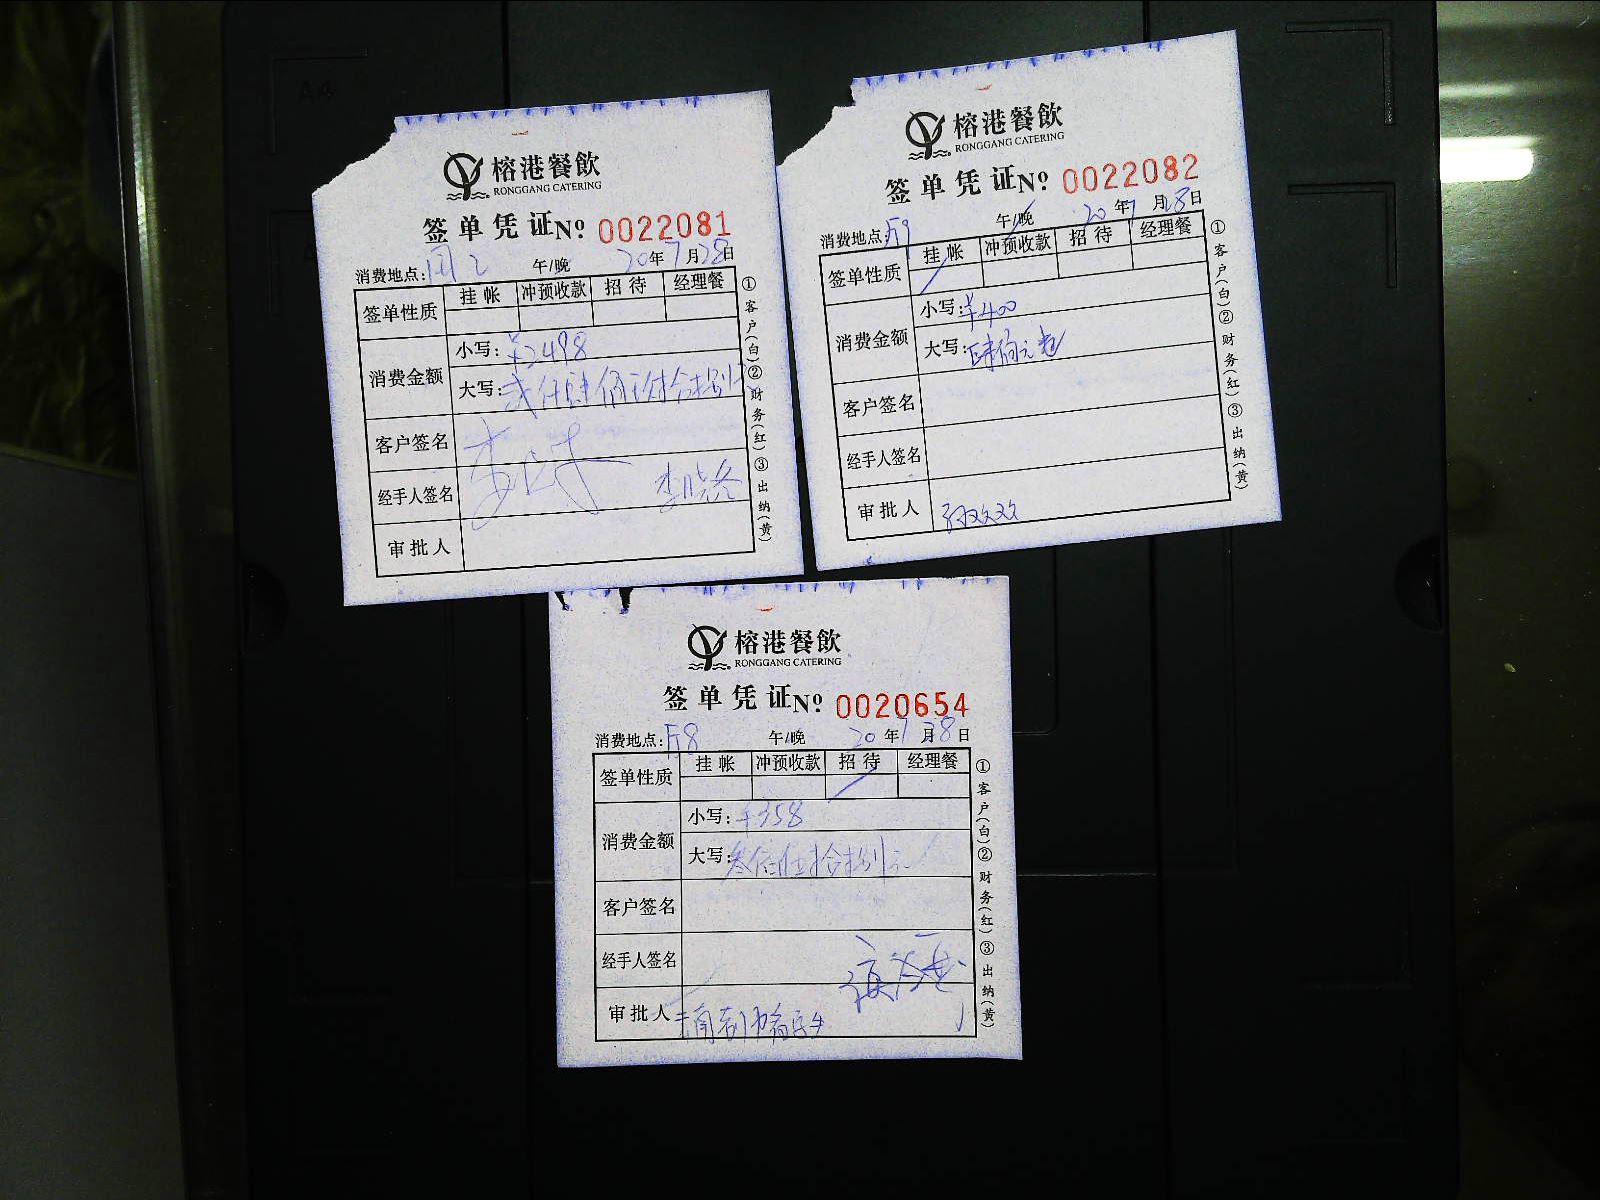 榕港餐飲
RONGGANG CATERING
签单凭证 Nº 0022081
消费地点: 午/晚 20年7月28日
签单性质 挂帐 冲预收款 招待 经理餐
消费金额 小写: ¥2498
大写: 贰仟肆佰玖拾捌
客户签名
经手人签名
审批人
①客户(白)②财务(红)③出纳(黄)
榕港餐飲
RONGGANG CATERING
签单凭证 Nº 0022082
消费地点: 万9 午/晚 20年7月28日
签单性质 挂帐 冲预收款 招待 经理餐
消费金额 小写: ¥400
大写: 肆佰元
客户签名
经手人签名
审批人
①客户(白)②财务(红)③出纳(黄)
榕港餐飲
RONGGANG CATERING
签单凭证 Nº 0020654
消费地点: 万8 午/晚 20年7月28日
签单性质 挂帐 冲预收款 招待 经理餐
消费金额 小写: ¥358
大写: 叁佰伍拾捌元
客户签名
经手人签名
审批人
①客户(白)②财务(红)③出纳(黄)